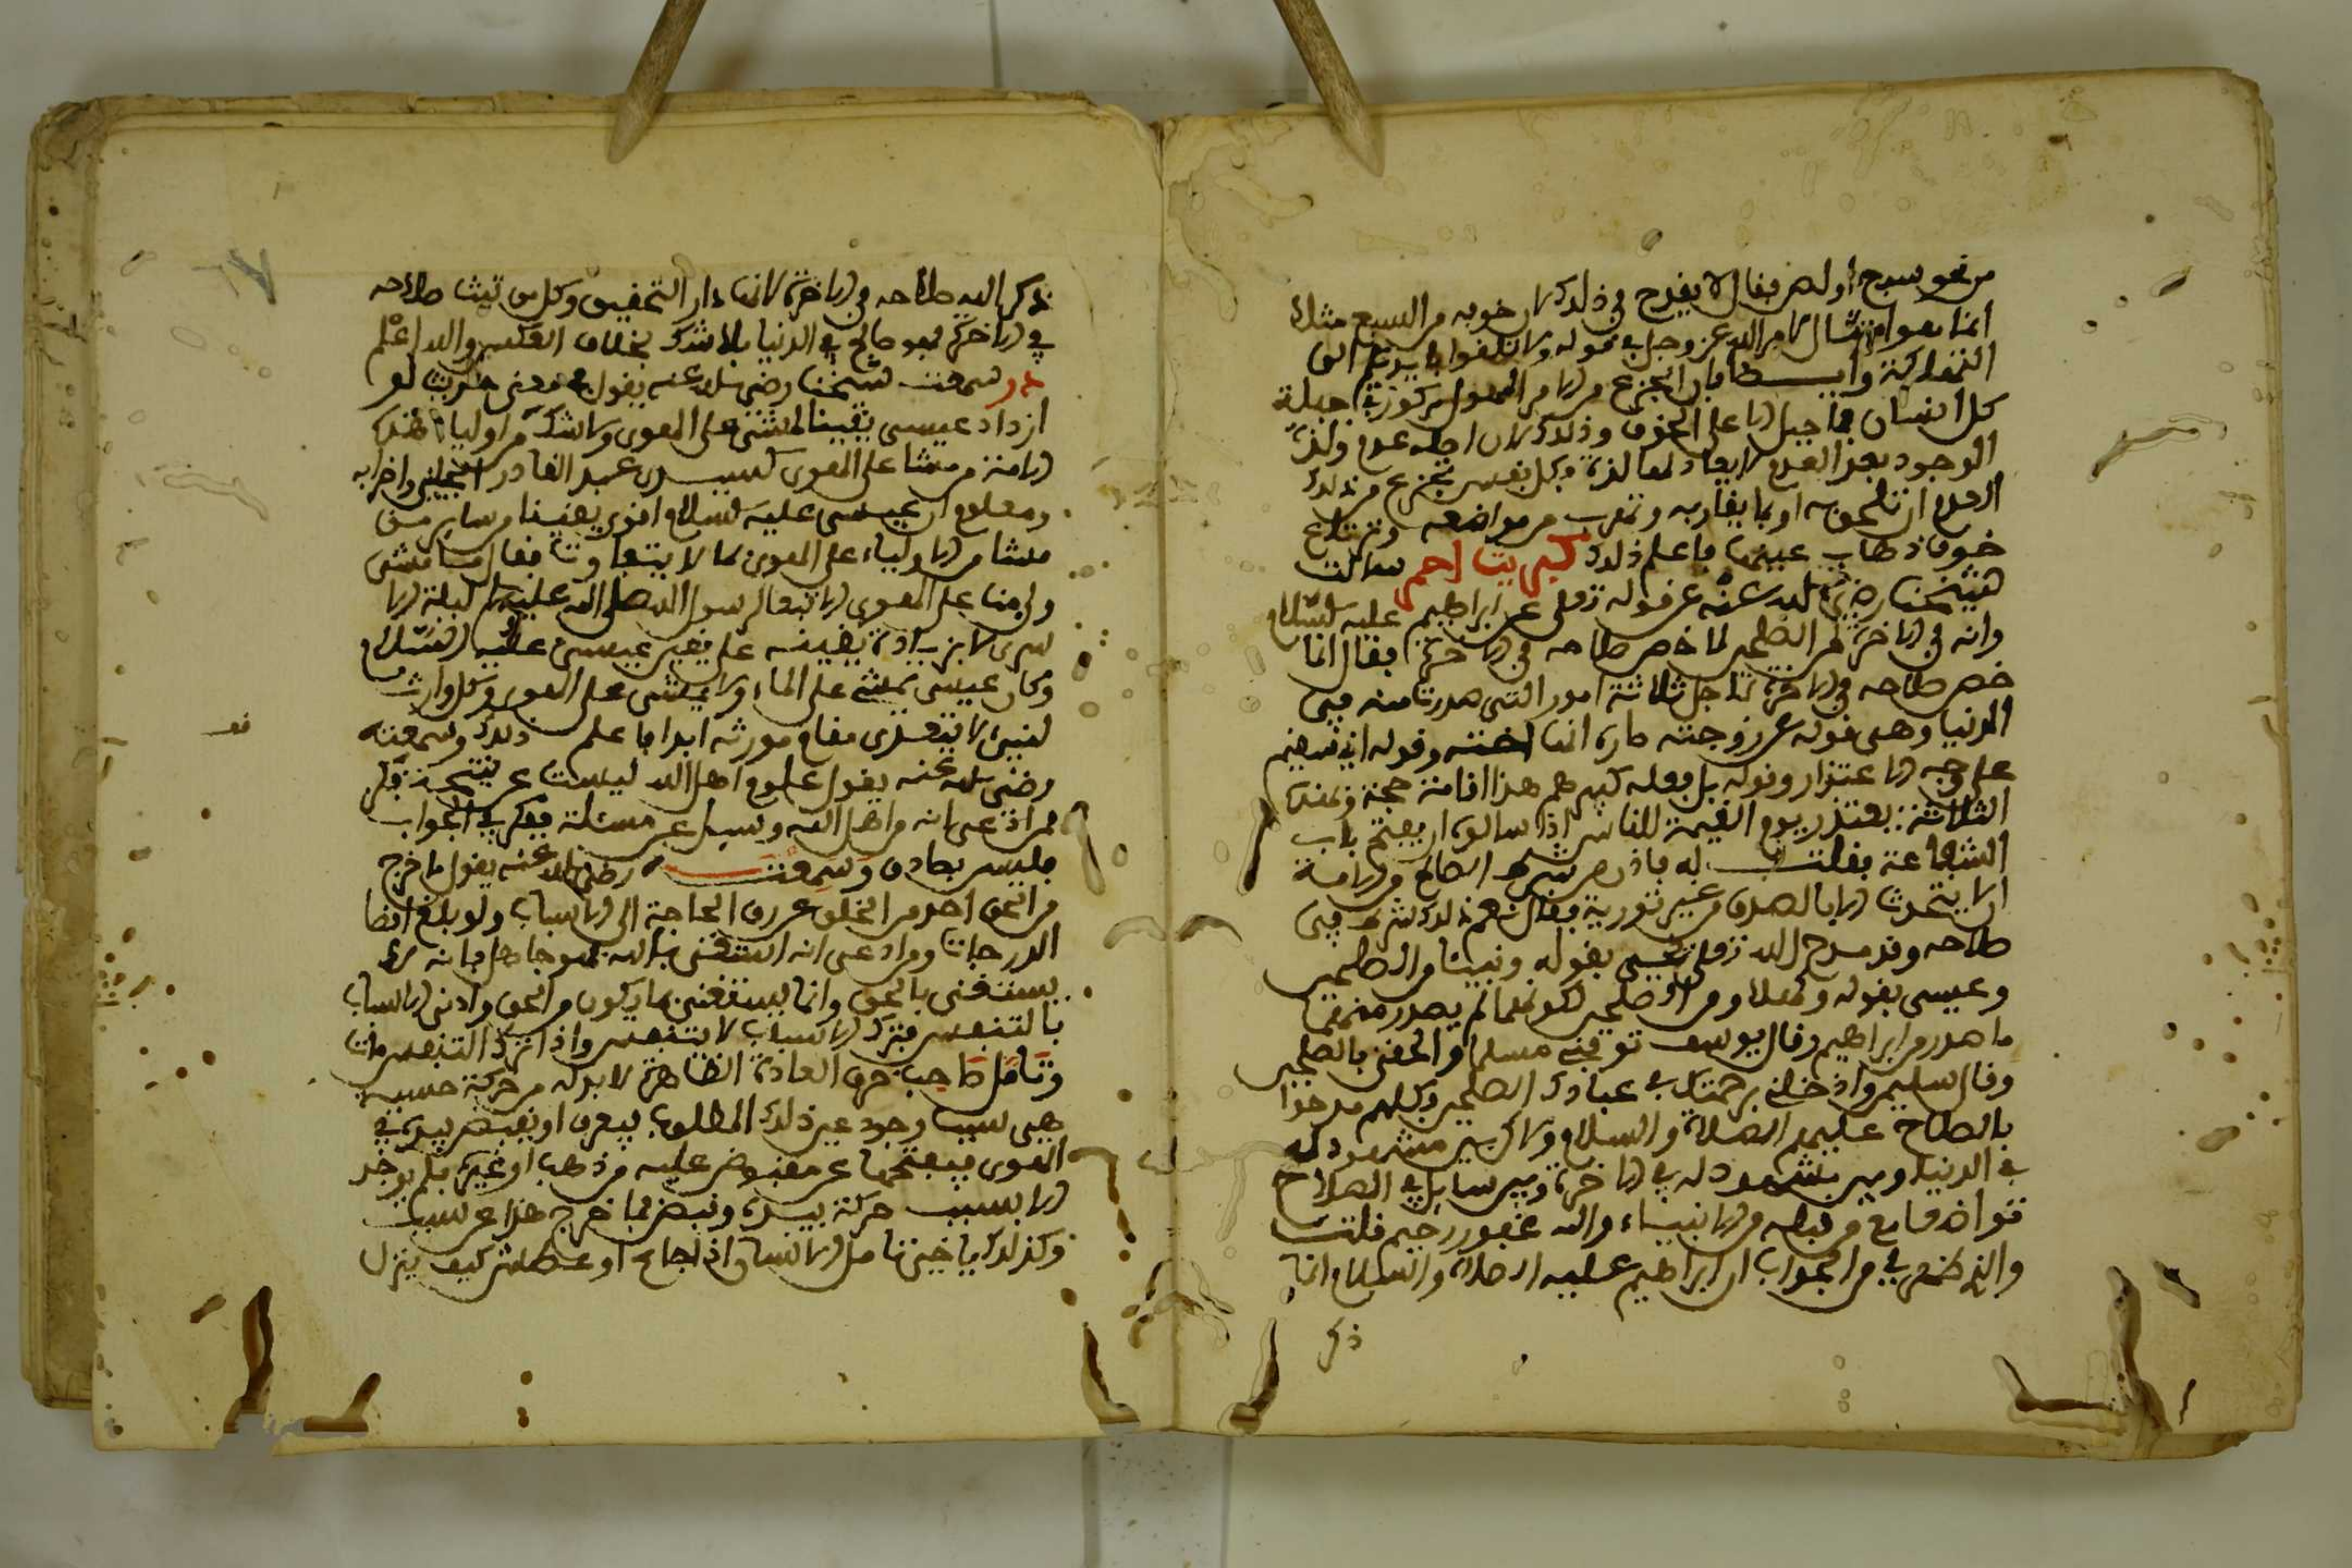 من نحو سبع أو لص فقال لا يقدح في ذلك لان خوفه من السبع مثلا
انما هو امتثال لامر الله عز وجل في قوله ولا تلقوا بايديكم الى
التهلكة وايضا فان الجزع من الامر المهول مركوز في جبلة
كل انسان فما جبل الا على الخوف وذلك لان اصله عدم ولذة
الوجود بعد العدم لا يعادلها لذة فكل نفس تجزع من ذلك
العدم ان تلحق به او بما يقاربه وتهرب من مواضعه وترتاع
خوف ذهاب عينها فاعلم ذلك كبريت احمر سالت
شيخنا رضي الله عنه عن قوله تعلى عن ابراهيم عليه السلام
وانه في الاخرة لمن الصلحين لما خص صلاحه في الاخرة فقال انما
خص صلاحه في الاخرة لاجل ثلاثة امور التي صدرت منه في
الدنيا وهي قوله عن زوجته سارة انها اخته وقوله اني سقيم
على وجه الاعتذار وقوله بل فعله كبيرهم هذا اقامة حجة وبهذه
الثلاثة يعتذر يوم القيمة للناس اذا سالوه ان يفتح باب
الشفاعة فقلت له فاذن من شرط الصالح في الاخرة
ان لا يتحدث الا بالصدق من غير تورية فقال نعم ذلك شرط في
صلاحه وقد مدح الله تعلى يحيى بقوله ونبيئا من الصلحين
وعيسى بقوله وكهلا ومن الصلحين لكونهما لم يصدر منهما
ما صدر من ابراهيم وقال يوسف توفني مسلما والحقني بالصلحين
وقال سليمن وادخلني برحمتك في عبادك الصلحين فكلهم مدحوا
بالصلاح عليهم الصلاة والسلام ولاكن بين مشهود له
في الدنيا وبين مشهود له في الاخرة وبين سايل في الصلاح
تواضعا مع من قبله من الانبياء والله غفور رحيم قلت
والذي ظهر لي من الجواب ان ابراهيم عليه الصلاة والسلام انما
ذكر
ذكر الله صلاحه في الاخرة لانها دار التحقيق وكل من ثبت صلاحه
في الاخرة فهو صالح في الدنيا بلا شك بخلاف العكس والله اعلم
در سمعت شيخنا رضي الله عنه يقول في معنى حديث لو
ازداد عيسى يقينا لمشى على الهوى ولا شك من اولياء هذه
الامة من مشا على الهوى كسيدي عبد القادر الجيلي واضرابه
ومعلوم ان عيسى عليه السلام اقوى يقينا من ساير من
مشا من الاولياء على الهوى بما لا يتفاوت فقال ما مشى
ولي منا على الهوى الا تبعا لرسول الله صلى الله عليه وسلم ليلة الا
سرى لا بزيادة يقينه على يقين عيسى عليه السلام
وكان عيسى يمشي على الماء ولا يمشي على الهوى وكل وارث
لنبيء لا يتعدى مقام مورثه ابدا فاعلم ذلك وسمعته
رضي الله عنه يقول علوم اهل الله ليست عن نتيجة فكر
فمن ادعى انه من اهل الله وسيل عن مسئلة ففكر في الجواب
فليس بصادق وسمعته رضي الله عنه يقول ما خرج
من الحق احد من الخلق عن رق الحاجة الى الاسباب ولو بلغ اقصا
الدرجات ومن ادعى انه استغنى بالله فهو جاهل فانه لا
يستغنى بالحق وانما يستغنى بما يكون من الحق وادنى الاسباب
بالتنفس فترك الاسباب لا تتنفس واذا ترك التنفس مات
وتامل صاحب خرق العادة الظاهرة لا بد له من حركة حسية
هي سبب وجود عين ذلك المطلوب فيغرف او يقبض بيده في
الهوى فيفتحها عن مقبوض عليه من ذهب او غيره فلم يوجد
الا بسبب حركة بيده وقبض فما خرج هذا عن سبب
وكذلك يا اخي تامل الانسان اذا جاع او عطش كيف ينزل